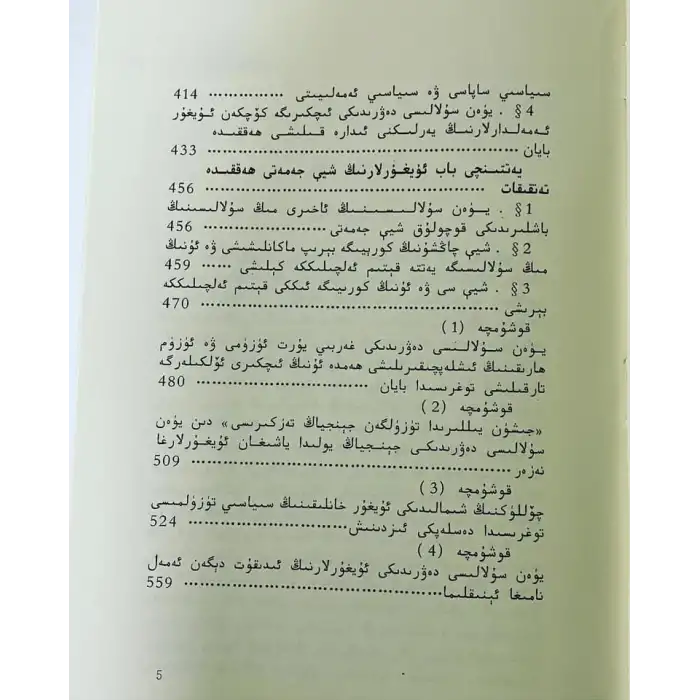 سىياسىي ساپاسى ۋە سىياسىي ئەمەلىيىتى ··············· 414
§ 4 . يۈەن سۇلالىسى دەۋرىدىكى ئىچكىرىگە كۆچكەن ئۇيغۇر
ئەمەلدارلارنىڭ يەرلىكنى ئىدارە قىلىشى ھەققىدە
بايان ··············· 433
يەتتىنچى باب ئۇيغۇرلارنىڭ شيې جەمەتى ھەققىدە
تەتقىقات ··············· 456
§ 1 . يۈەن سۇلالىسىنىڭ ئاخىرى مىڭ سۇلالىسىنىڭ
باشلىرىدىكى قوچولۇق شيې جەمەتى ··············· 456
§ 2 . شيې چاڭشۇنىڭ كورېيىگە بېرىپ ماكانلىشىشى ۋە ئۇنىڭ
مىڭ سۇلالىسىگە يەتتە قېتىم ئەلچىلىككە كېلىشى ······ 459
§ 3 . شيې سى ۋە ئۇنىڭ كورىيىگە ئىككى قېتىم ئەلچىلىككە
بېرىشى ··············· 470
قوشۇمچە (1)
يۈەن سۇلالىسى دەۋرىدىكى غەربىي يۇرت ئۈزۈمى ۋە ئۈزۈم
ھارىقىنىڭ ئىشلەپچىقىرىلىشى ھەمدە ئۇنىڭ ئىچكىرى ئۆلكىلەرگە
تارقىلىشى توغرىسىدا بايان ··············· 480
قوشۇمچە (2)
«جىشۈن يىللىرىدا تۈزۈلگەن جېنجياڭ تەزكىرىسى» دىن يۈەن
سۇلالىسى دەۋرىدىكى جېنجياڭ يولىدا ياشىغان ئۇيغۇرلارغا
نەزەر ··············· 509
قوشۇمچە (3)
چۆللۈكنىڭ شىمالىدىكى ئۇيغۇر خانلىقىنىڭ سىياسىي تۈزۈلمىسى
توغرىسىدا دەسلەپكى ئىزدىنىش ··············· 524
قوشۇمچە (4)
يۈەن سۇلالىسى دەۋرىدىكى ئۇيغۇرلارنىڭ ئىدىقۇت دېگەن ئەمەل
نامىغا ئېنىقلىما ··············· 559
5